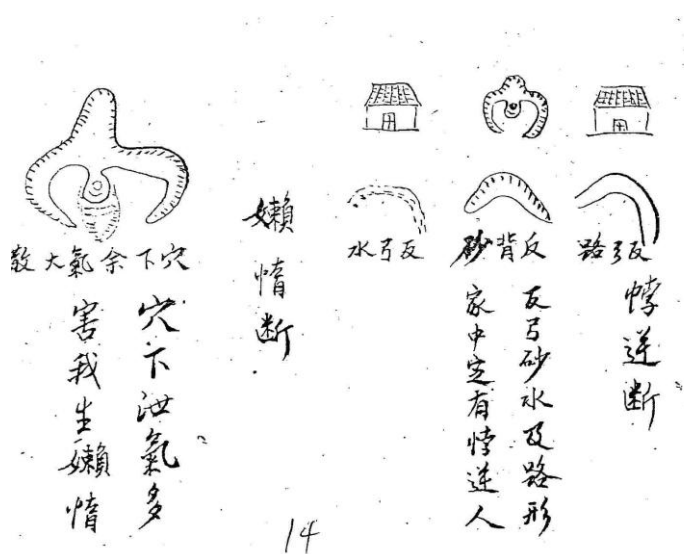 反弓路
悖逆断
反背砂
反弓砂水及路形
家中定有悖逆人
反弓水
嬾惰断
穴下余氣大散
穴下泄氣多
害我生嬾惰
14